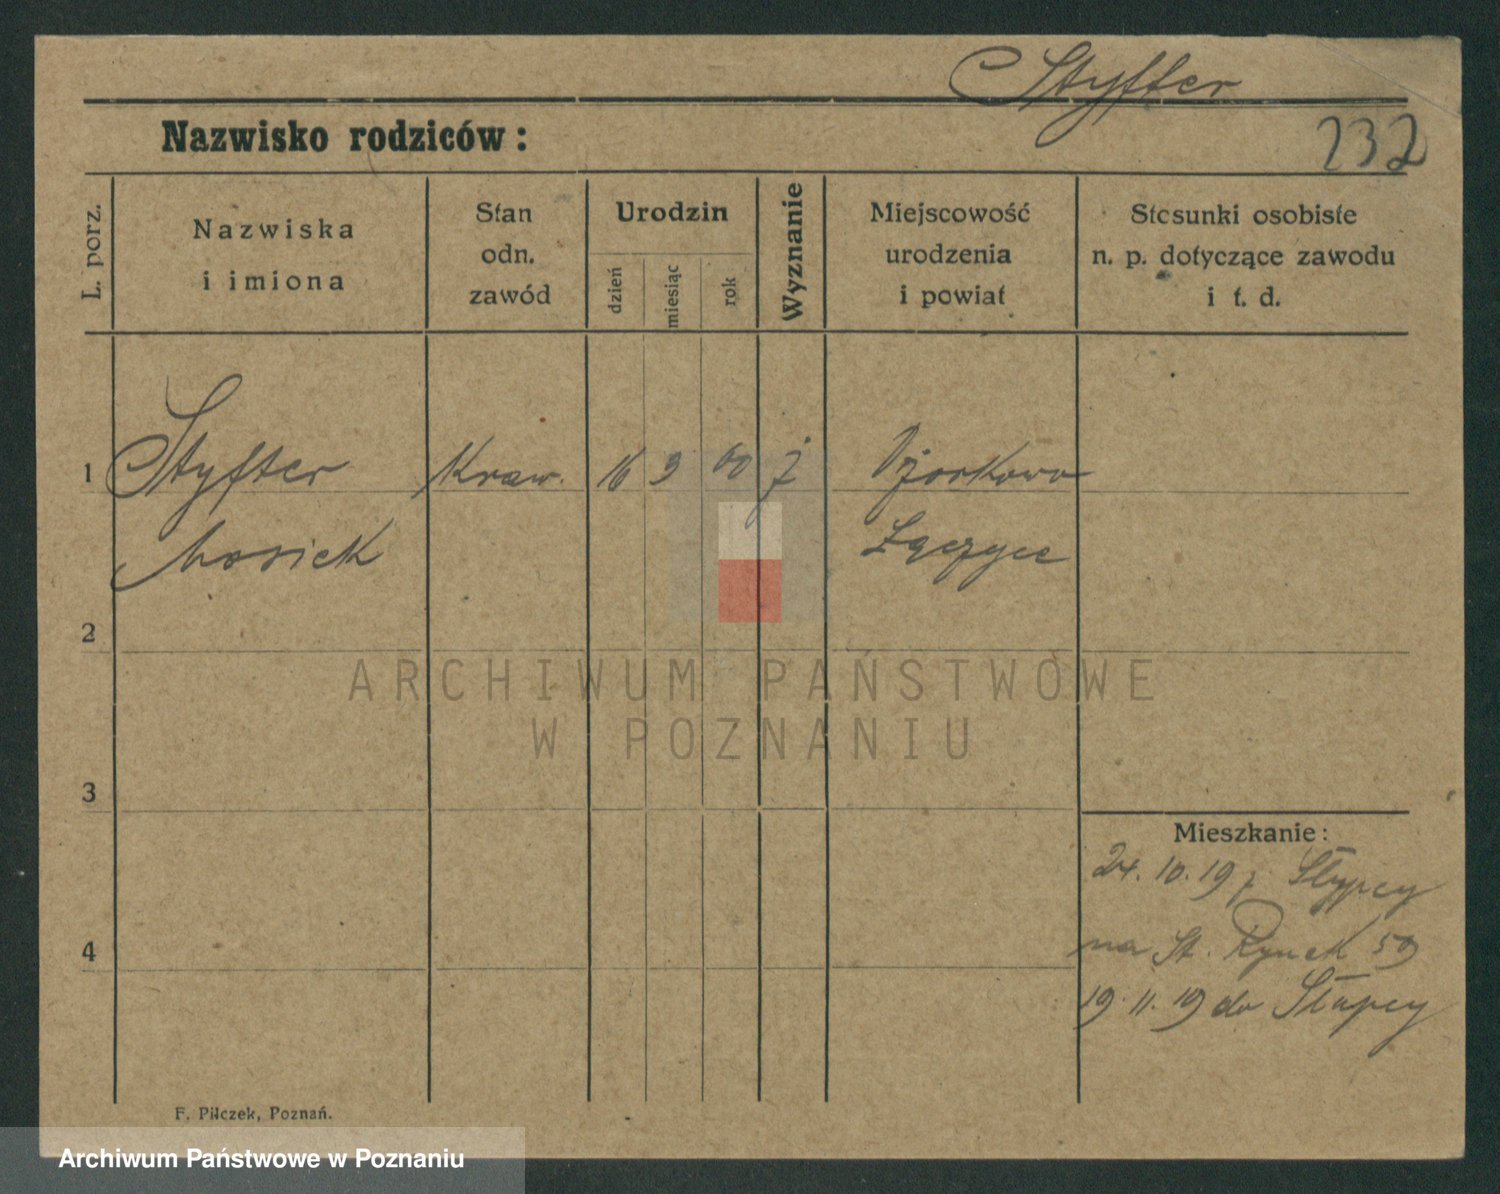 Styffer
Nazwisko rodziców:
232
L. porz.
Nazwiska
i imiona
Stan
odn.
zawód
Urodzin
dzień
miesiąc
rok
Wyznanie
Miejscowość
urodzenia
i powiat
Stosunki osobiste
n. p. dotyczące zawodu
i t. d.
1
Styfter
Kraw.
16
3
00
ż
Ozorkowo
Mosiek
Łęczyce
2
ARCHIWUM PAŃSTWOWE
W POZNANIU
3
Mieszkanie:
24.10.19 z Słupcy
4
na St. Rynek 59
19.11.19 do Słupcy
F. Pilczek, Poznań.
Archiwum Państwowe w Poznaniu